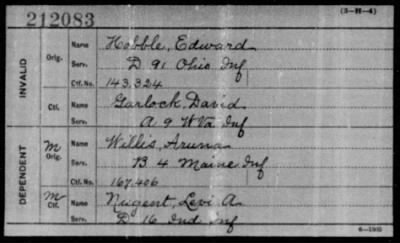 212083
(3-H-4)
INVALID
Orig.
Name Hobble, Edward
Serv. D 91 Ohio Inf
Ctf. No. 143,324
Ctf.
Name Garlock, David
Serv. A 9 W Va Inf
DEPENDENT
M Orig.
Name Willis, Aruna
Serv. B. 4 Maine Inf
Ctf. No. 167,406
M Ctf.
Name Nugent, Levi A.
Serv. D 16 Ind Inf